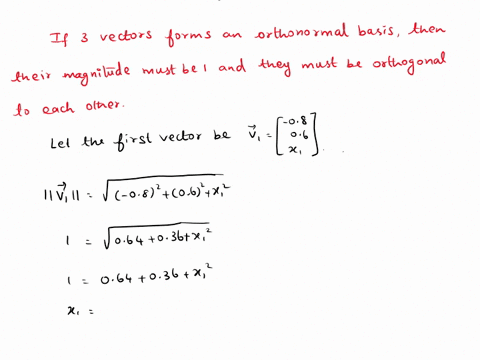 If 3 vectors forms an orthonormal basis, then
their magnitude must be 1 and they must be orthogonal
to each other.
Let the first vector be V⃗₁ = [-0.8 0.6 x₁] . . .
||V⃗₁|| = √((-0.8)²+(0.6)²+x₁²)
1 = √(0.64+0.36+x₁²)
1 = 0.64+0.36+x₁²
x₁ =